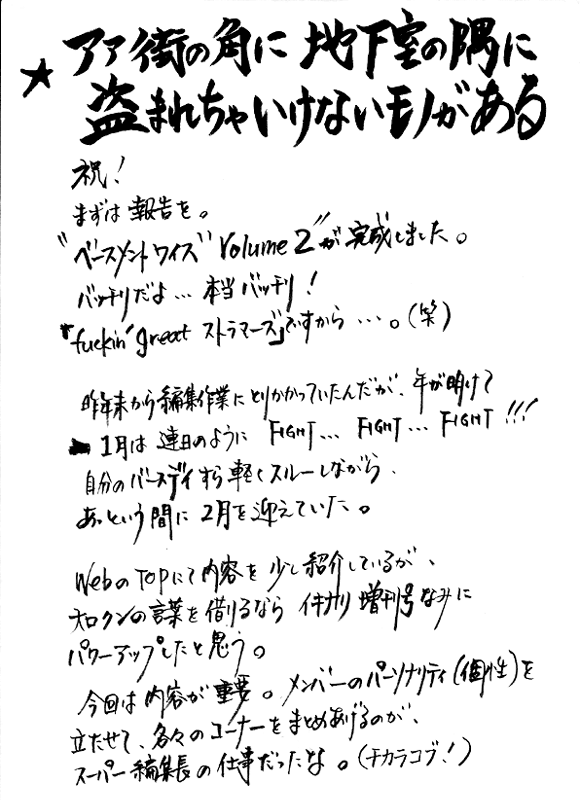 ★ アァ街の角に 地下室の隅に
盗まれちゃいけないモノがある
祝!
まずは報告を。
"ベースメントワイズ" Volume 2"が完成しました。
バッチリだよ…本当バッチリ!
『fuckin' great ストラマーズ』ですから…。(笑)
昨年末から編集作業にとりかかっていたんだが、年が明けて
1月は連日のように FIGHT… FIGHT… FIGHT!!!
自分のバースディすら軽くスルーしながら、
あっという間に2月を迎えていた。
WebのTOPにて内容を少し紹介しているが、
オロクンの言葉を借りるなら イキナリ増刊号なみに
パワーアップしたと思う。
今回は内容が重要。メンバーのパーソナリティ(個性)を
立たせて、各々のコーナーをまとめあげるのが、
スーパー編集長の仕事だったよな。(チカラコブ!)